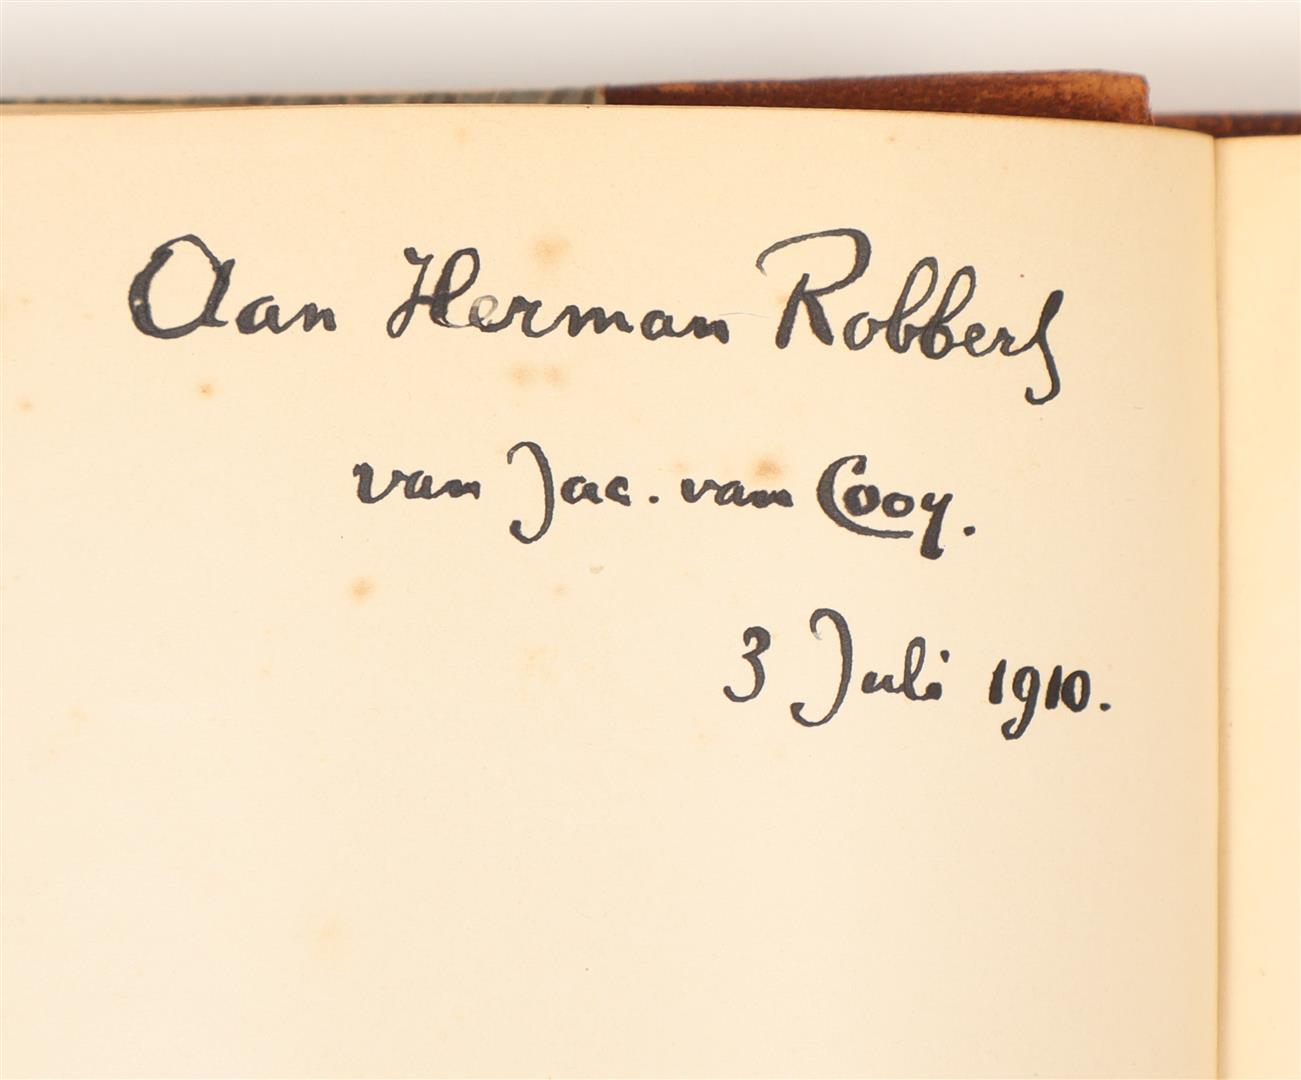 Aan Herman Robbers
van Jac. van Looy.
3 Juli 1910.